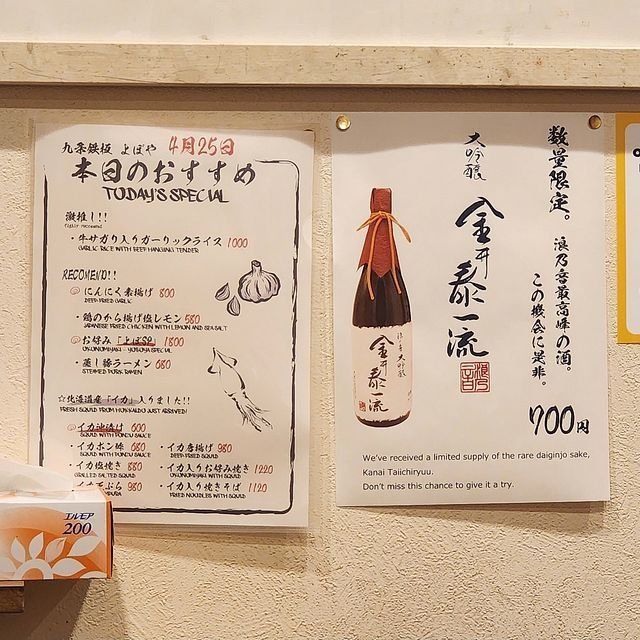 九条鉄板 よぼや 4月25日
本日のおすすめ
TODAY'S SPECIAL
激推し!!
・牛サガリ入りガーリックライス 1000
GARLIC RICE WITH BEEF HANGING TENDER
RECOMEND!!
にんにく素揚げ 800
DEEP FRIED GARLIC
・鶏のから揚げ塩レモン 580
JAPANESE FRIED CHICKEN WITH LEMON AND SEA SALT
お好み「よぼSP」 1800
OKONOMIYAKI - YOBOYA SPECIAL
・蒸し豚ラーメン 680
STEAMED PORK RAMEN
☆北海道産「イカ」入りました!!
FRESH SQUID FROM HOKKAIDO JUST ARRIVED!
イカ沖漬け 600
SQUID WITH PONZU SAUCE
・イカポン酢 680
SQUID WITH PONZU SAUCE
・イカ塩焼き 880
GRILLED SALTED SQUID
天ぷら 980
・イカ唐揚げ 980
DEEP FRIED SQUID
・イカ入りお好み焼き 1220
OKONOMIYAKI WITH SQUID
・イカ入り焼きそば 1120
FRIED NOODLES WITH SQUID
エルモア
200
数量限定。
浪乃音最高峰の酒。
この機会に是非。
大吟醸
金井泰一流
浪乃音
大吟醸
金井泰一流
700円
We've received a limited supply of the rare daiginjo sake,
Kanai Taiichiryuu.
Don't miss this chance to give it a try.